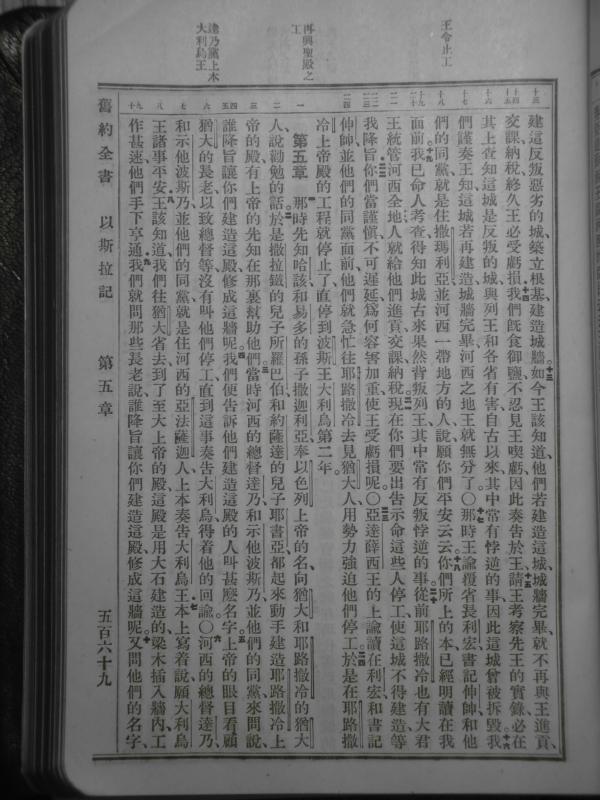 王令止工
再興聖殿之
工
達乃黨上本
大利烏王
建這反叛惡劣的城築立根基建造城牆如今王該知道他們若建造這城城牆完畢就不再與王進貢
交課納稅終久王必受虧損我們旣食御鹽不忍見王喫虧因此奏告於王請王考察先王的實錄必在
其上查知這城是反叛的城與列王和各省有害自古以來其中常有悖逆的事因此這城曾被拆毀我
們謹奏王知這城若再建造城牆完畢河西之地王就無分了〇那時王諭覆省長利宏書記伸帥和他
們的同黨就是住撒瑪利亞並河西一帶地方的人說願你們平安云云你們所上的本已經明讀在我
面前我已命人考查得知此城古來果然背叛列王其中常有反叛悖逆的事從前耶路撒冷也有大君
王統管河西全地人就給他們進貢交課納稅現在你們要出告示命這些人停工使這城不得建造等
我降旨你們當謹愼不可遲延爲何容害加重使王受虧損呢〇亞達薛西王的上諭讀在利宏和書記
伸帥並他們的同黨面前他們就急忙往耶路撒冷去見猶大人用勢力強迫他們停工於是在耶路撒
冷上帝殿的工程就停止了直停到波斯王大利烏第二年
第五章 那時先知哈該和易多的孫子撒迦利亞奉以色列上帝的名向猶大和耶路撒冷的猶大
人說勸勉的話於是撒拉鐵的兒子所羅巴伯和約薩達的兒子耶書亞都起來動手建造耶路撒冷上
帝的殿有上帝的先知在那裏幫助他們當時河西的總督達乃和示他波斯乃並他們的同黨來問說
誰降旨讓你們建造這殿修成這牆呢我們便告訴他們建造這殿的人叫甚麼名字上帝的眼目看顧
猶大的長老以致總督等沒有叫他們停工直到這事奏告大利烏得着他的回諭〇河西的總督達乃
和示他波斯乃並他們的同黨就是住河西的亞法薩迦人上本奏告大利烏王本上寫着說願大利烏
王諸事平安王該知道我們往猶大省去到了至大上帝的殿這殿是用大石建造的梁木插入牆內工
作甚速他們手下亨通我們就問那些長老說誰降旨讓你們建造這殿修成這牆呢又問他們的名字
舊約全書 以斯拉記 第五章 五百六十九